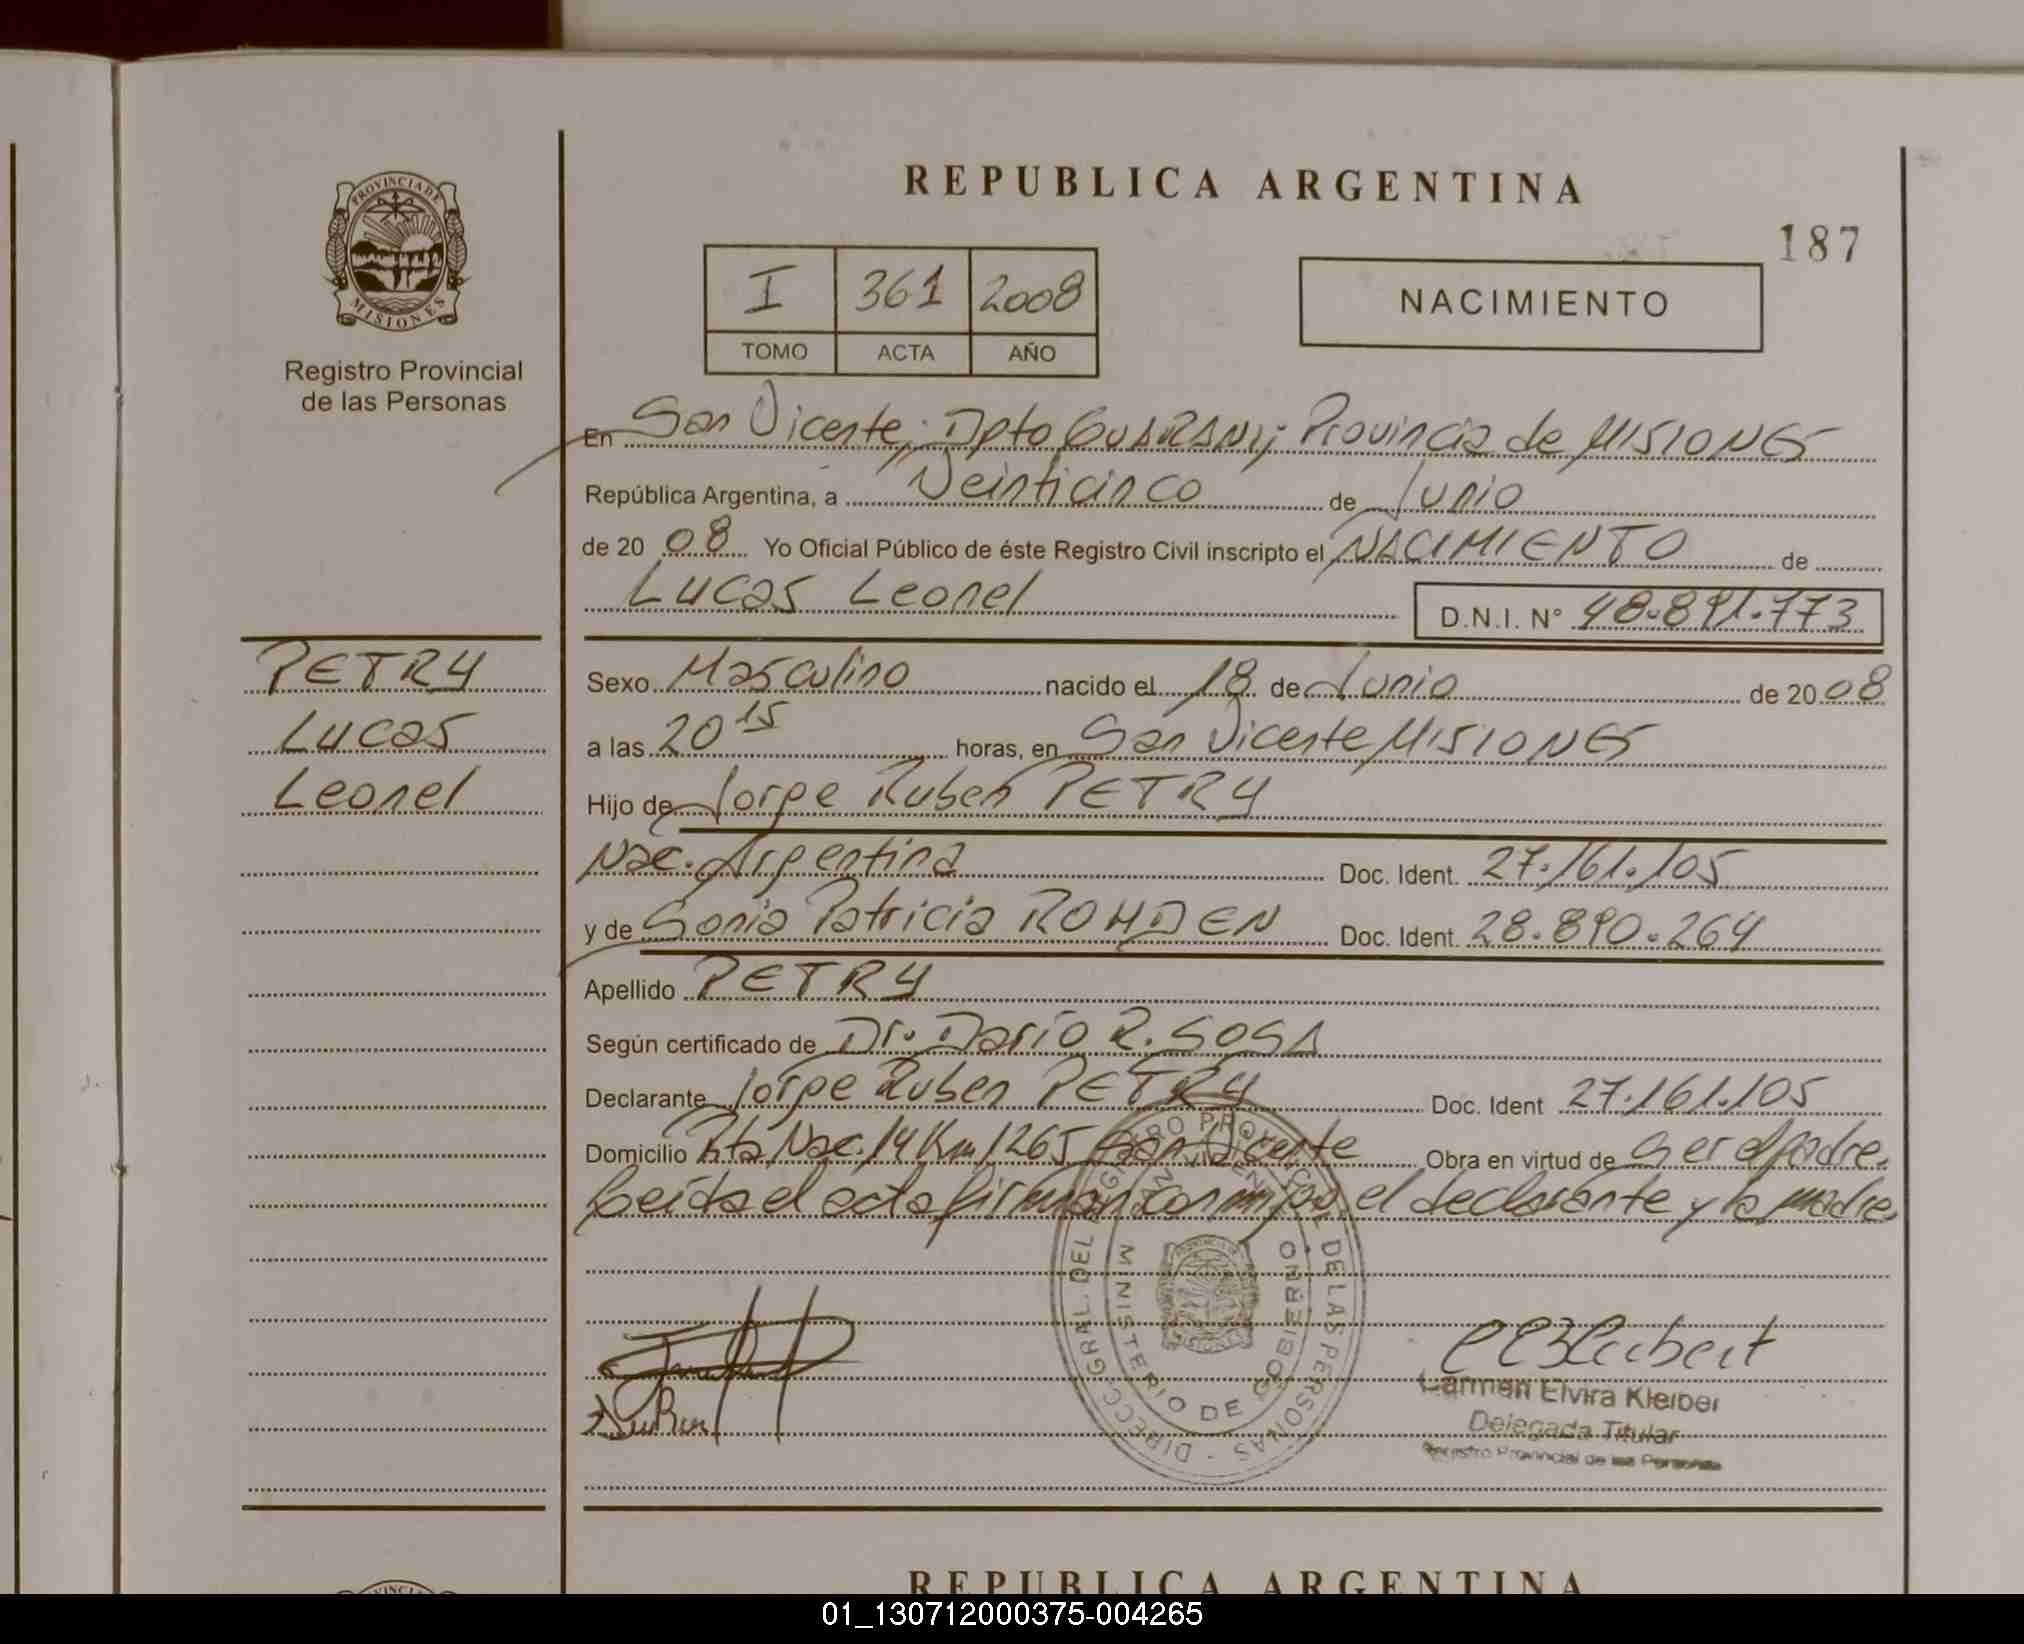 REPUBLICA ARGENTINA
187
PROVINCIA DE
MISIONES
Registro Provincial
de las Personas
I 361 2008
TOMO ACTA AÑO
NACIMIENTO
En San Vicente; Dpto GUARANI; Provincia de MISIONES
República Argentina, a Veinticinco de Junio
de 20 08 Yo Oficial Público de éste Registro Civil inscripto el NACIMIENTO de
Lucas Leonel D.N.I. N° 48.891.773
PETRY
Lucas
Leonel
Sexo Masculino nacido el 18 de Junio de 20 08
a las 20 15 horas, en San Vicente MISIONES
Hijo de Jorge Ruben PETRY
Nac. Argentina Doc. Ident. 27.161.105
y de Sonia Patricia ROHDEN Doc. Ident. 28.890.264
Apellido PETRY
Según certificado de Dr. Darío R. SOSA
Declarante Jorge Ruben PETRY Doc. Ident 27.161.105
Domicilio Rta Nac. 14 Km 1265 San Vicente Obra en virtud de ser el padre.
Leída el acta firman conmigo el declarante y la madre.
DIRECC. GRAL. DEL REGISTRO PROVINCIAL DE LAS PERSONAS
MINISTERIO DE GOBIERNO
Carmen Elvira Kleiber
Delegada Titular
Registro Provincial de las Personas
REPUBLICA ARGENTINA
01_130712000375-004265